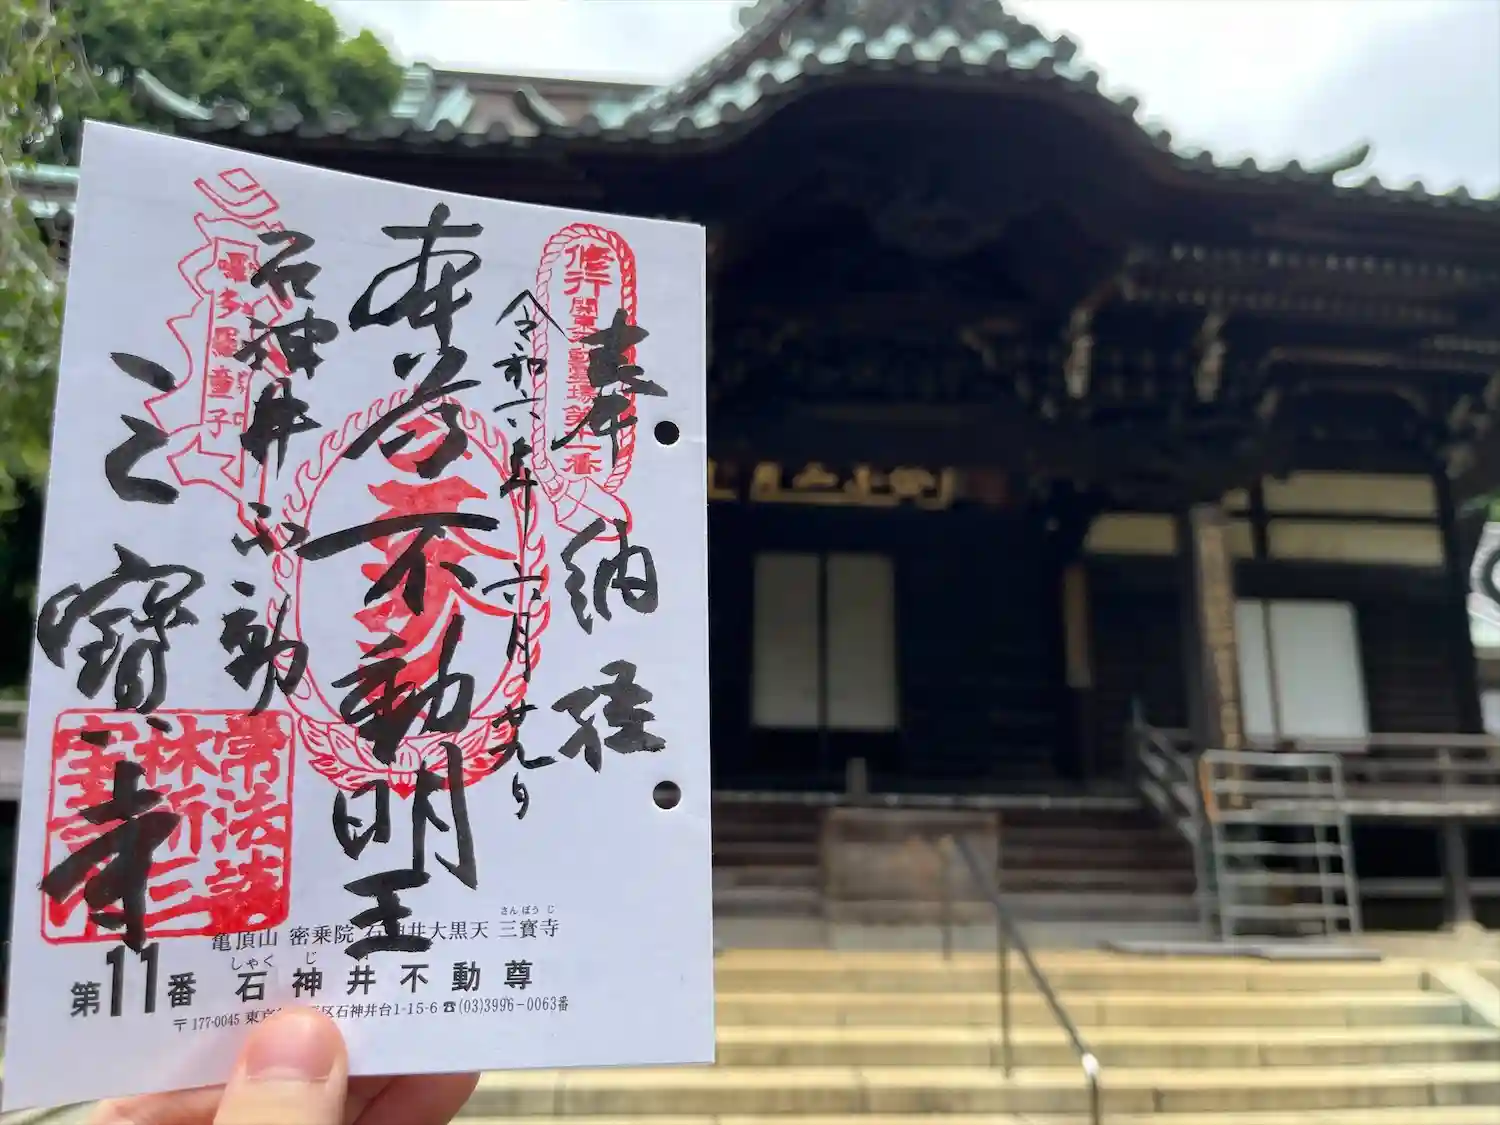 奉納経
修行
関東不動霊場第十一番
令和六年六月廿九日
本尊不動明王
石神井不動
多羅童子
三寶寺
常法談林所三寶寺
亀頂山 密乗院 石神井大黒天 三寳寺
さんぽうじ
第11番 石神井不動尊
しゃくじ
〒177-0045 東京 区石神井台1-15-6 ☎(03)3996-0063番